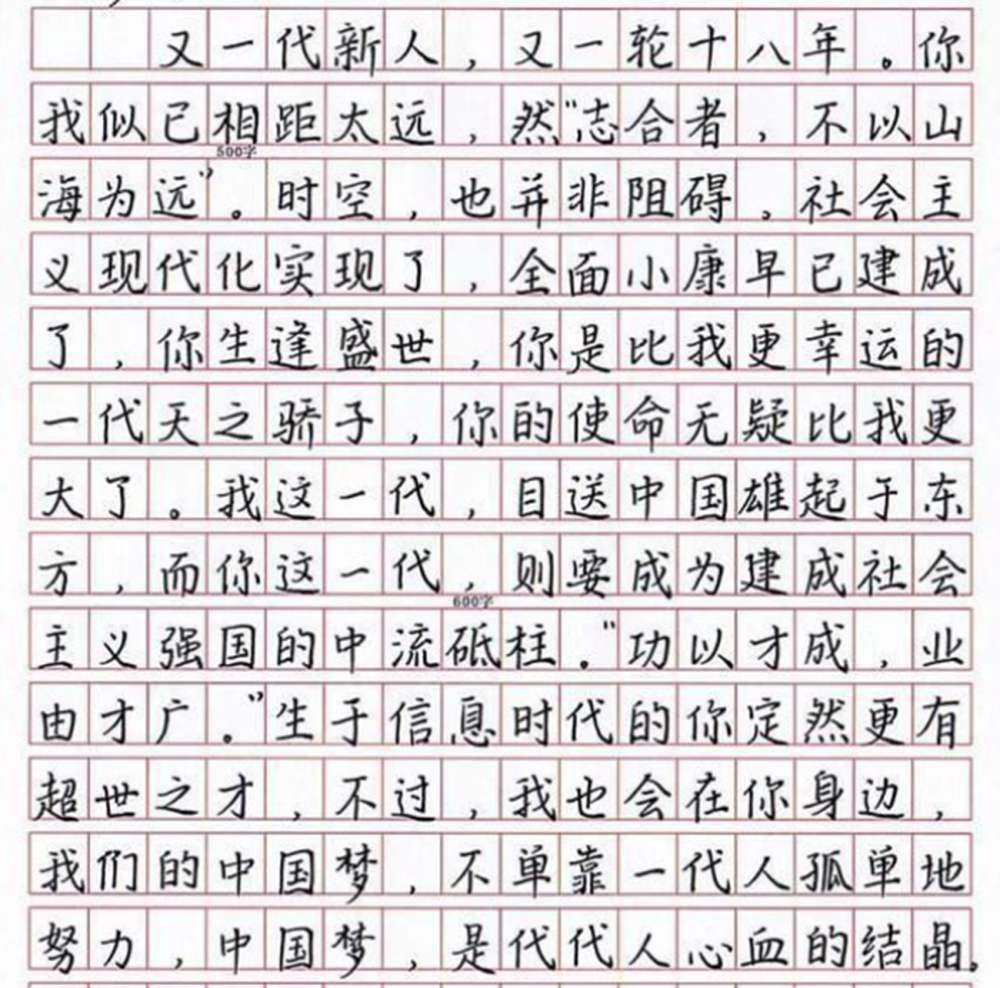 又一代新人，又一轮十八年。你
我似已相距太远，然“志合者，不以山
500字
海为远”。时空，也并非阻碍。社会主
义现代化实现了，全面小康早已建成
了，你生逢盛世，你是比我更幸运的
一代天之骄子，你的使命无疑比我更
大了。我这一代，目送中国雄起于东
方，而你这一代，则要成为建成社会
600字
主义强国的中流砥柱。“功以才成，业
由才广。”生于信息时代的你定然更有
超世之才，不过，我也会在你身边，
我们的中国梦，不单靠一代人孤单地
努力，中国梦，是代代人心血的结晶。